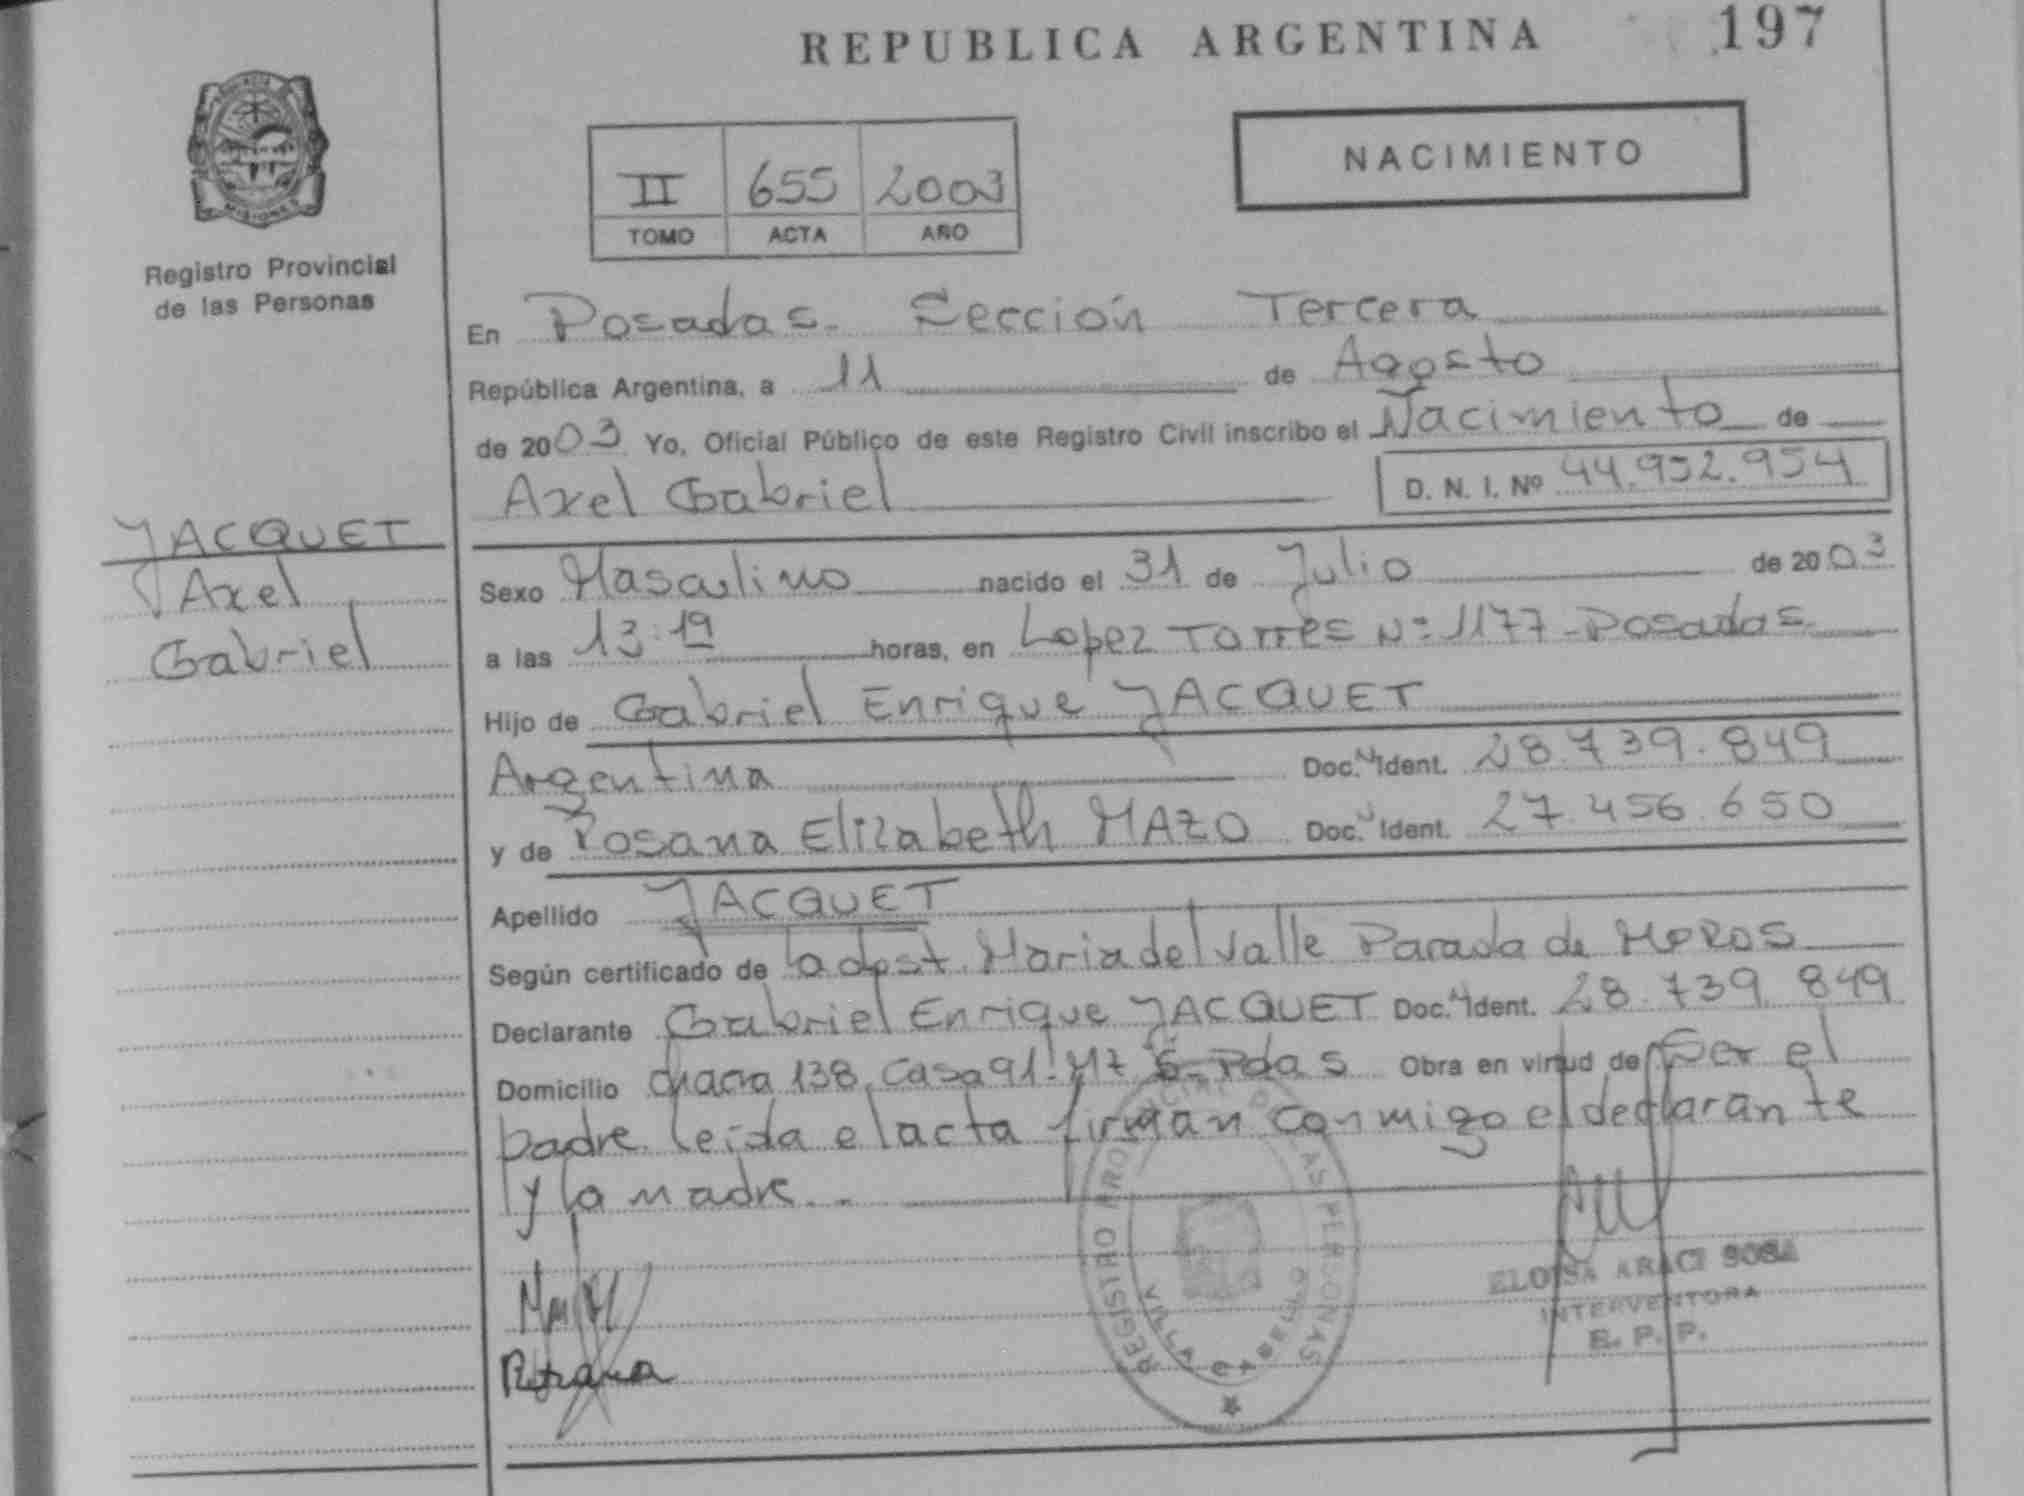 REPUBLICA ARGENTINA 197
NACIMIENTO
II 655 2003
TOMO ACTA AÑO
MISIONES
Registro Provincial
de las Personas
JACQUET
Axel
Gabriel
En Posadas. Sección Tercera
República Argentina, a 11 de Agosto
de 2003 Yo, Oficial Público de este Registro Civil inscribo el Nacimiento de
Axel Gabriel D. N. I. Nº 44.952.954
Sexo Masculino nacido el 31 de Julio de 2003
a las 13:19 horas, en Lopez Torres Nº 1177 - Posadas.
Hijo de Gabriel Enrique JACQUET
Argentina Doc. N Ident. 28.739.849
y de Rosana Elizabeth MAZO Doc. N Ident. 27.456.650
Apellido JACQUET
Según certificado de la obst. Maria del Valle Parada de MOROS
Declarante Gabriel Enrique JACQUET Doc. N Ident. 28.739.849
Domicilio chacra 138, Casa 91- Mz 6- Pdas Obra en virtud de Ser el
padre. leida el acta firman conmigo el declarante
y la madre. -
ELOISA ARACI SOSA
INTERVENTORA
R. P. P.
REGISTRO PROVINCIAL DE LAS PERSONAS
VILLA CABELLO